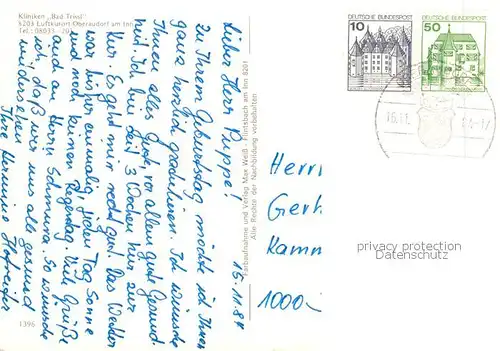 Kliniken „Bad Trissl"
8203 Luftkurort Oberaudorf am Inn
Tel.: 08033-20
15.11.84
Lieber Herr Puppe!
zu Ihrem Geburtstag möchte ich Ihnen
ganz herzlich gratulieren. Ich wünsche
Ihnen alles Gute, vor allem gute Gesund-
heit. Ich bin seit 3 Wochen hier zur
Kur. Es geht mir recht gut. Das Wetter
war bisher einmalig, jeden Tag Sonne
und noch keinen Regentag. Viele Grüße
sind an Herrn Schmurra. So wünsche
ich, daß wir uns alle gesund
wiedersehen
Ihre Hermine
1396
Farbaufnahme und Verlag Max Weiß · Flintsbach am Inn 8201
Alle Rechte der Nachbildung vorbehalten
DEUTSCHE BUNDESPOST
10
DEUTSCHE BUNDESPOST
50
Herrn
Gerh
Kamm
1000
privacy protection
Datenschutz